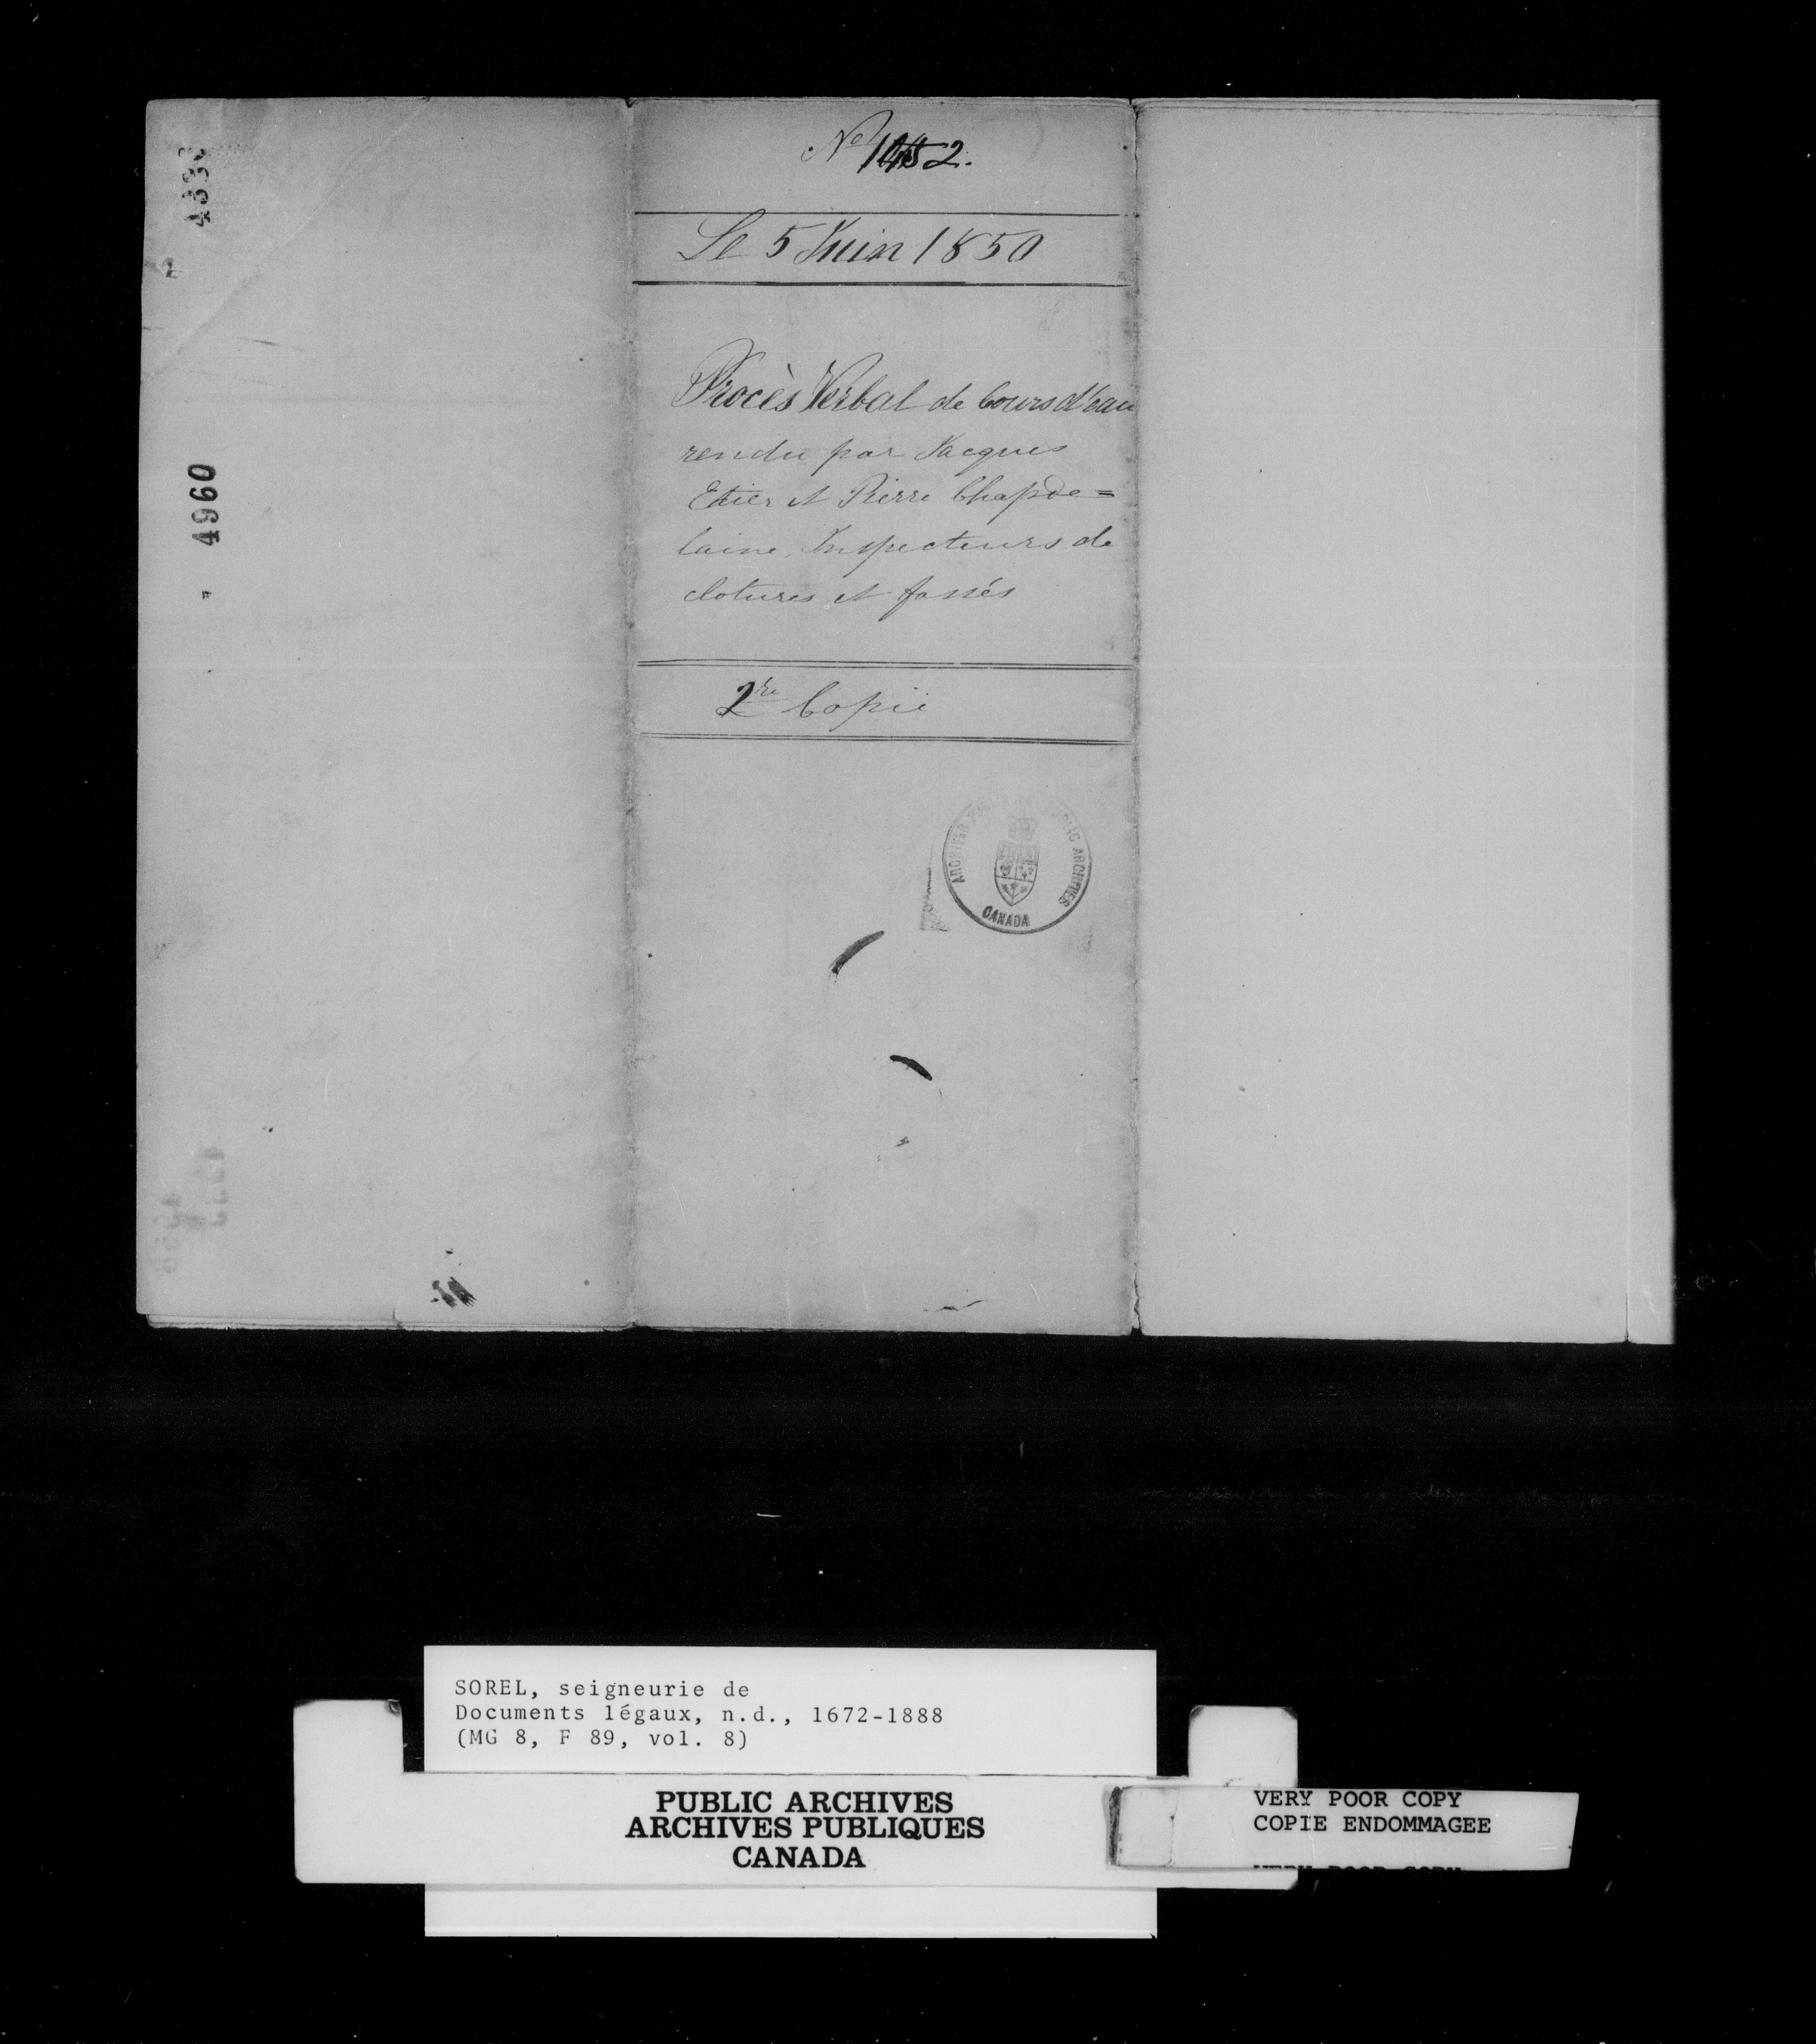 No 1452.
Le 5 Juin 1850
Procès Verbal de Cours d'eau
rendu par Jacques
Etier et Pierre Chapde=
laine, Inspecteurs de
clotures et fossés
2re Copie
4960
ARCHIVES PUBLIC ARCHIVES
CANADA
SOREL, seigneurie de
Documents légaux, n.d., 1672-1888
(MG 8, F 89, vol. 8)
PUBLIC ARCHIVES
ARCHIVES PUBLIQUES
CANADA
VERY POOR COPY
COPIE ENDOMMAGEE
VERY POOR COPY